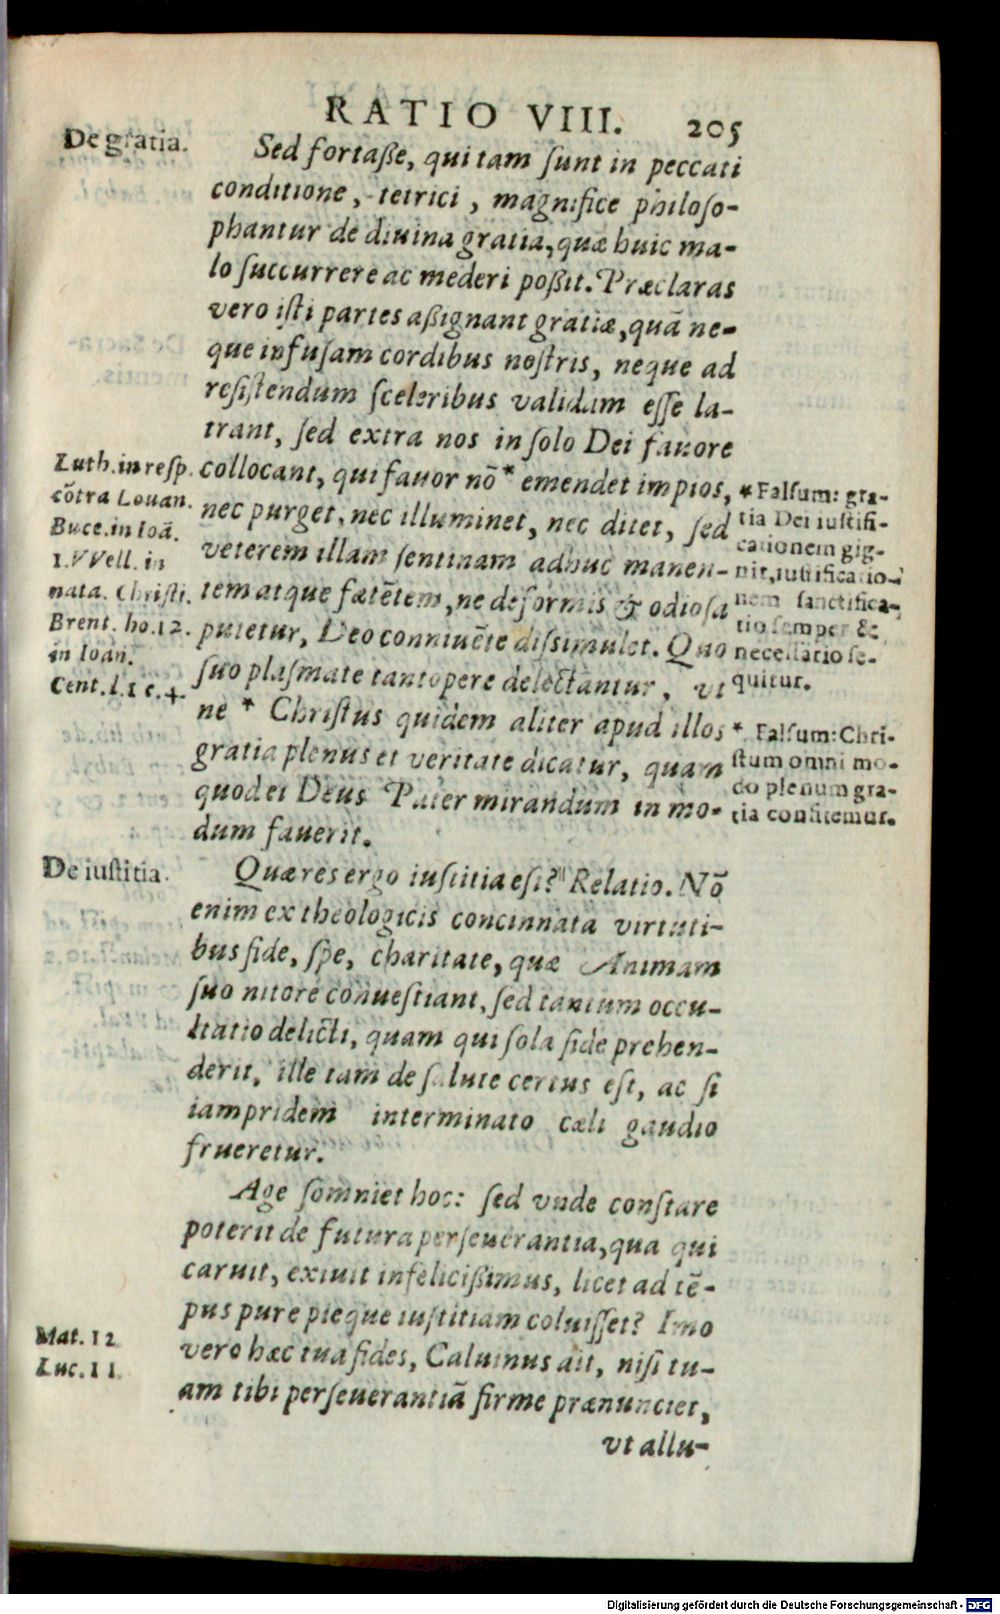 RATIO VIII. 205
De gratia.
Sed fortaße, qui tam ſunt in peccati
conditione, tetrici, magnifice philoſo-
phantur de diuina gratia, quæ huic ma-
lo ſuccurrere ac mederi poßit. Præclaras
vero iſti partes aßignant gratiæ, quā ne-
que infuſam cordibus noſtris, neque ad
reſiſtendum ſceleribus validam eſſe la-
trant, ſed extra nos in ſolo Dei fauore
collocant, qui fauor nō * emendet impios,
nec purget, nec illuminet, nec ditet, ſed
veterem illam ſentinam adhuc manen-
tem atque fætētem, ne deformis & odioſa
putetur, Deo conniuēte diſsimulet. Quo
ſuo plaſmate tantopere delectantur, vt
ne * Chriſtus quidem aliter apud illos
gratia plenus et veritate dicatur, quam
quod ei Deus Pater mirandum in mo-
dum fauerit.
Luth. in reſp.
cōtra Louan.
Buce. in Ioā.
1. VVell. in
nata. Chriſti.
Brent. ho. 12.
in Ioan.
Cent. l. 1 c. 4.
* Falſum: gra-
tia Dei iuſtifi-
cationem gig-
nit, iuſtificatio-
nem ſanctifica-
tio ſemper &
neceſſario ſe-
quitur.
* Falſum: Chri-
ſtum omni mo-
do plenum gra-
tia confitemur.
De iuſtitia.
Quæ res ergo iuſtitia eſt? " Relatio. Nō
enim ex theologicis concinnata virtuti-
bus fide, ſpe, charitate, quæ Animam
ſuo nitore conueſtiant, ſed tantum occu-
ltatio delicti, quam qui ſola fide prehen-
derit, ille tam de ſalute certus eſt, ac ſi
iampridem interminato cæli gaudio
frueretur.
Age ſomniet hoc: ſed vnde conſtare
poterit de futura perſeuerantia, qua qui
caruit, exiuit infelicißimus, licet ad tē-
pus pure pieque iuſtitiam coluiſſet? Imo
vero hæc tua fides, Caluinus ait, niſi tu-
am tibi perſeuerantiā firme prænunciet,
Mat. 12
Luc. 11.
vt allu-
Digitalisierung gefördert durch die Deutsche Forschungsgemeinschaft - DFG